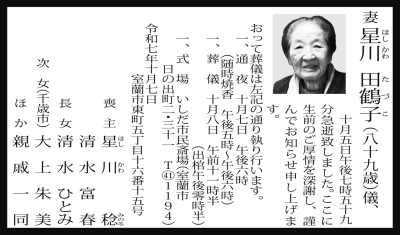 妻 星川 田鶴子(八十九歳)儀、
ほしかわ たづこ
十月五日午後七時五十九
分急逝致しました。ここに
生前のご厚情を深謝し、謹
んでお知らせ申し上げま
す。
おって葬儀は左記の通り執り行います。
一、通夜 十月七日 午後六時
(随時焼香 午後五時〜午後六時)
一、葬儀 十月八日 午前十一時
(出棺午後零時半)
一、式場 いしだ市民斎場(室蘭市
日の出町二-二-二十一 T㊶1194)
令和七年十月七日
室蘭市東町五丁目十六番十五号
喪主 星川 稔
ほしかわ みのる
清水富春
長女 清水ひとみ
次女(千歳市) 大上朱美
ほか 親戚一同